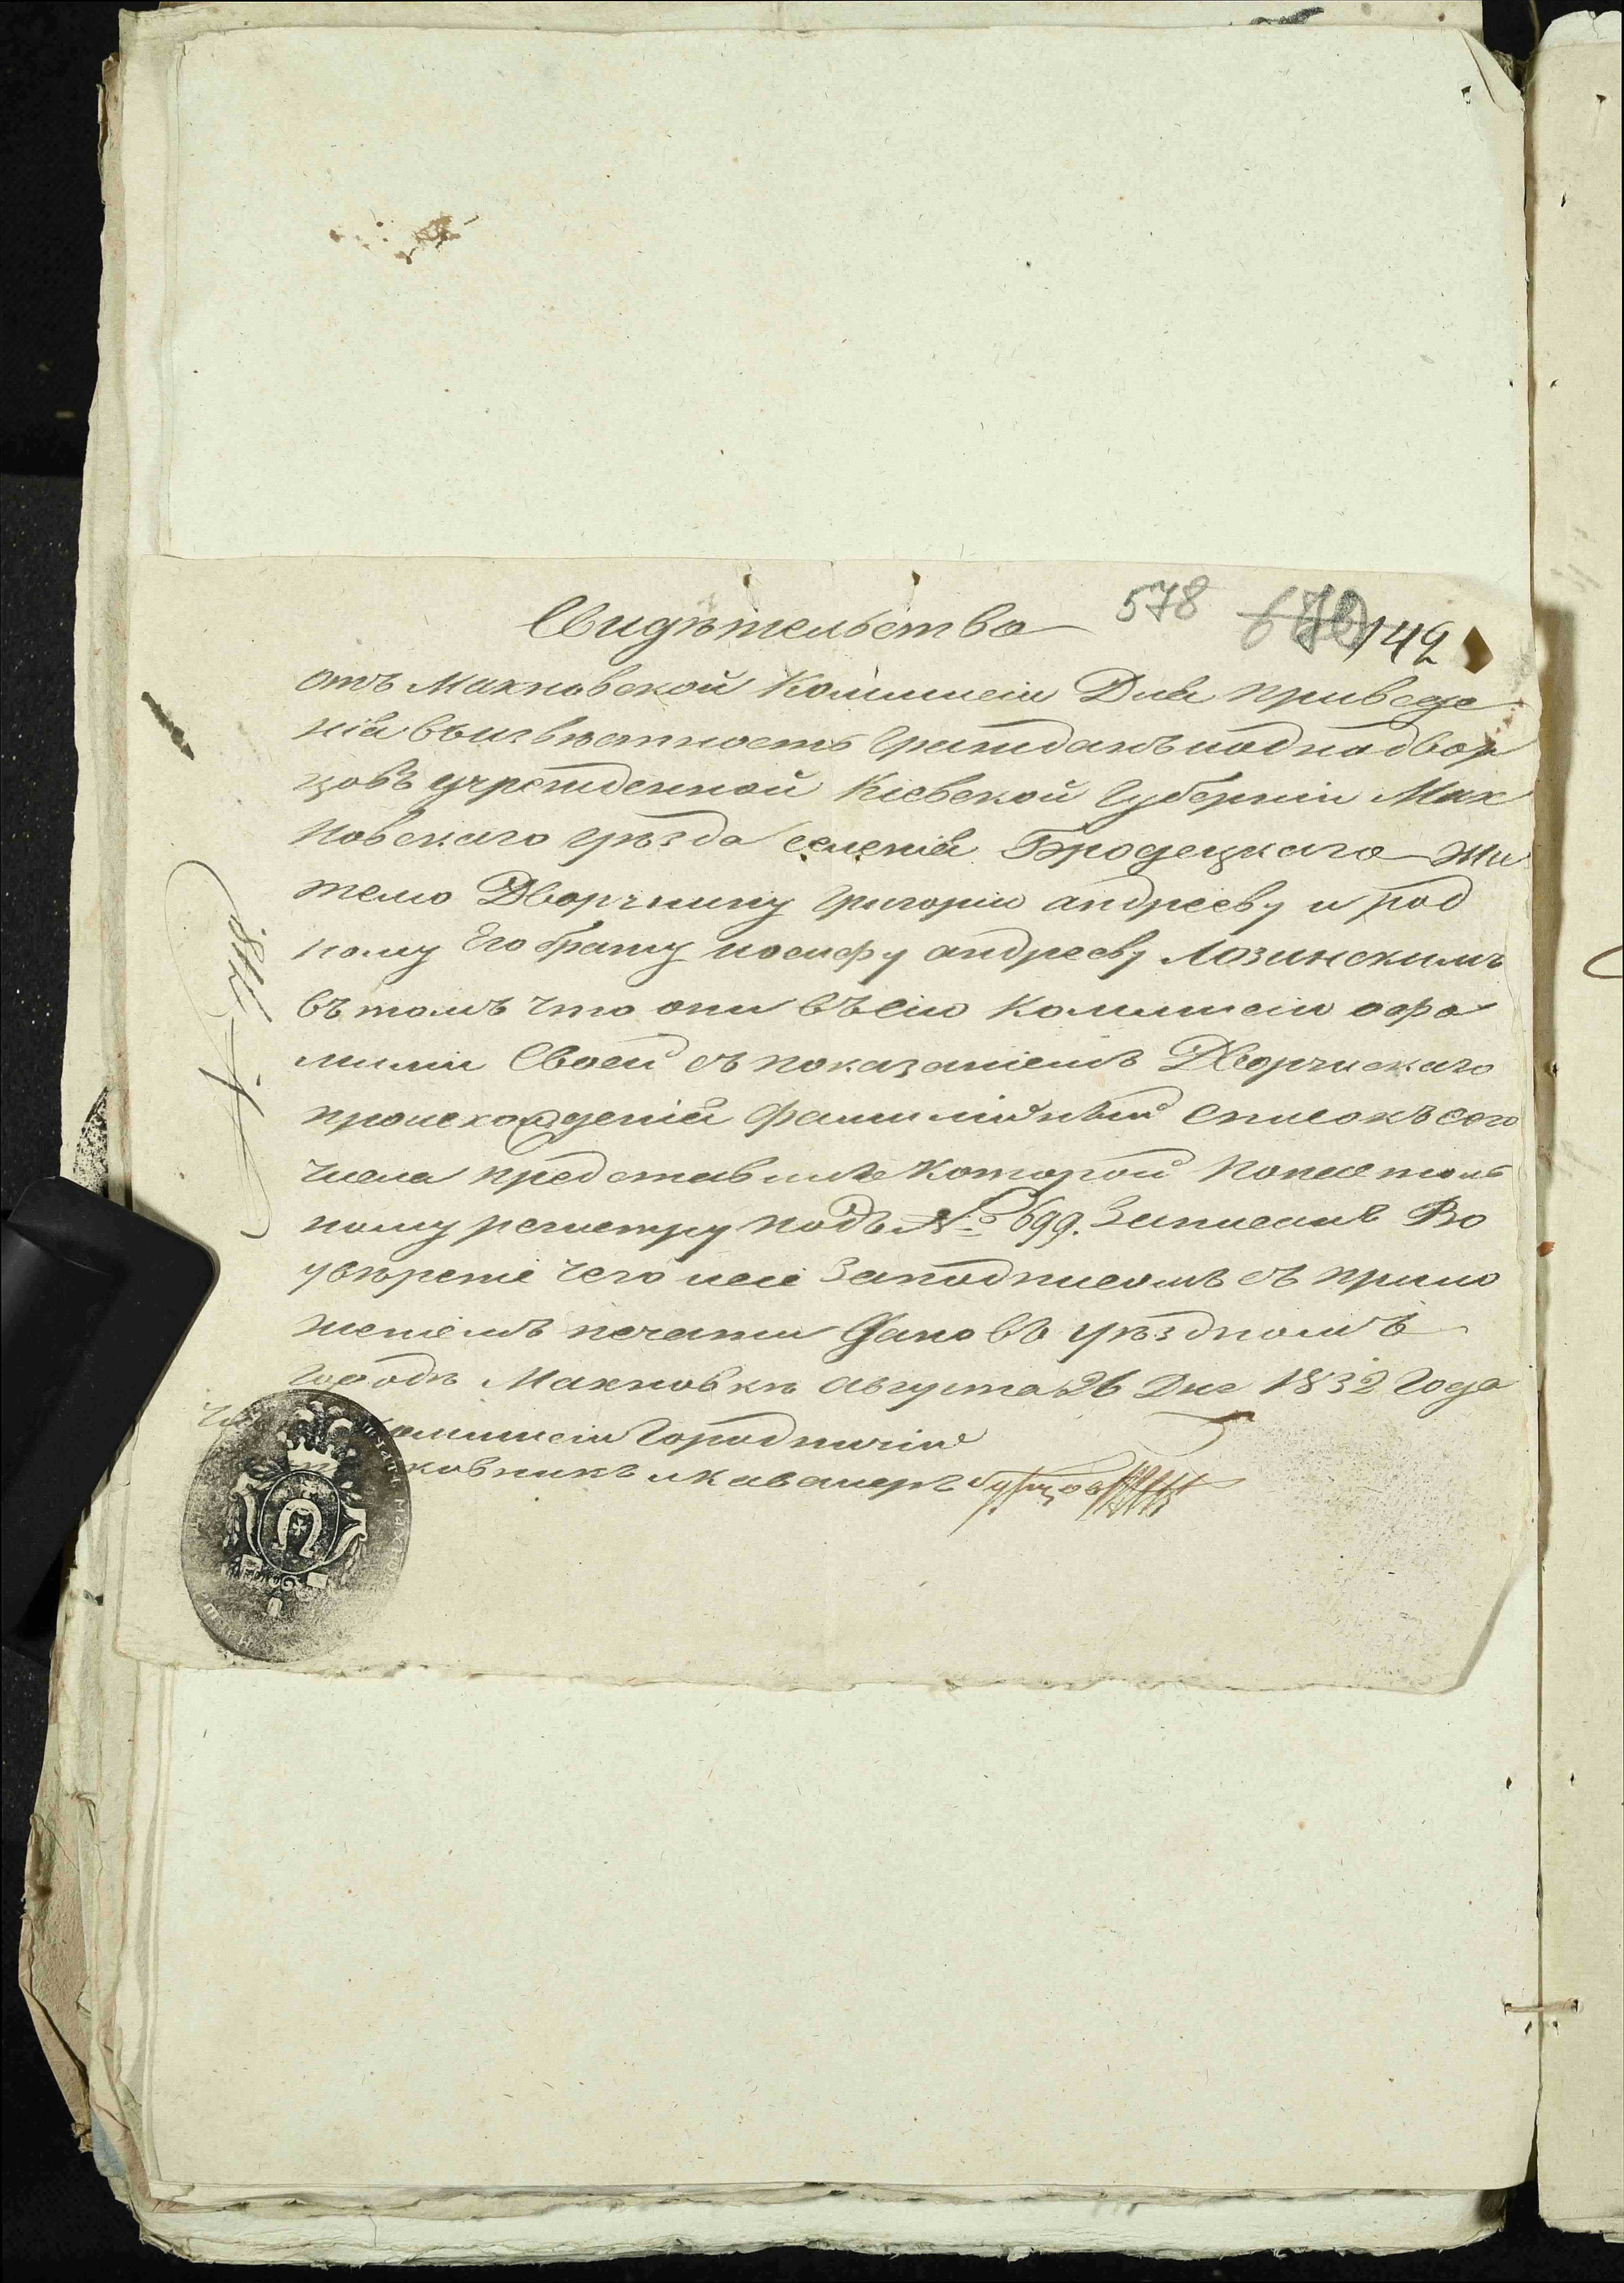 Свидѣтельство 578 142
отъ Махновской Коммисіи Для приведе
нія въ извѣстность Гражданъ и однодвор
цовъ учрежденной Кіевской Губерніи Мах
Новскаго уѣзда селенія Бродецкаго Жи
телю Дворянину Григорію андрееву и род
ному Его брату иосифу андрееву Лозинскимъ
въ томъ что они въ сію Коммисію о фа
миліи Своей съ показаніемъ Дворянскаго
происхожденія фамилійный списокъ сего
числа представили Которой По
ному регистру подъ № 699. Записанъ Во
увѣреніе чего сіе За подписомъ съ прило
женіемъ печати Дано въ уѣздномъ
городѣ Махновкѣ августа 26 Дня 1832 Года
Коммисіи Городничій
и Кавалеръ